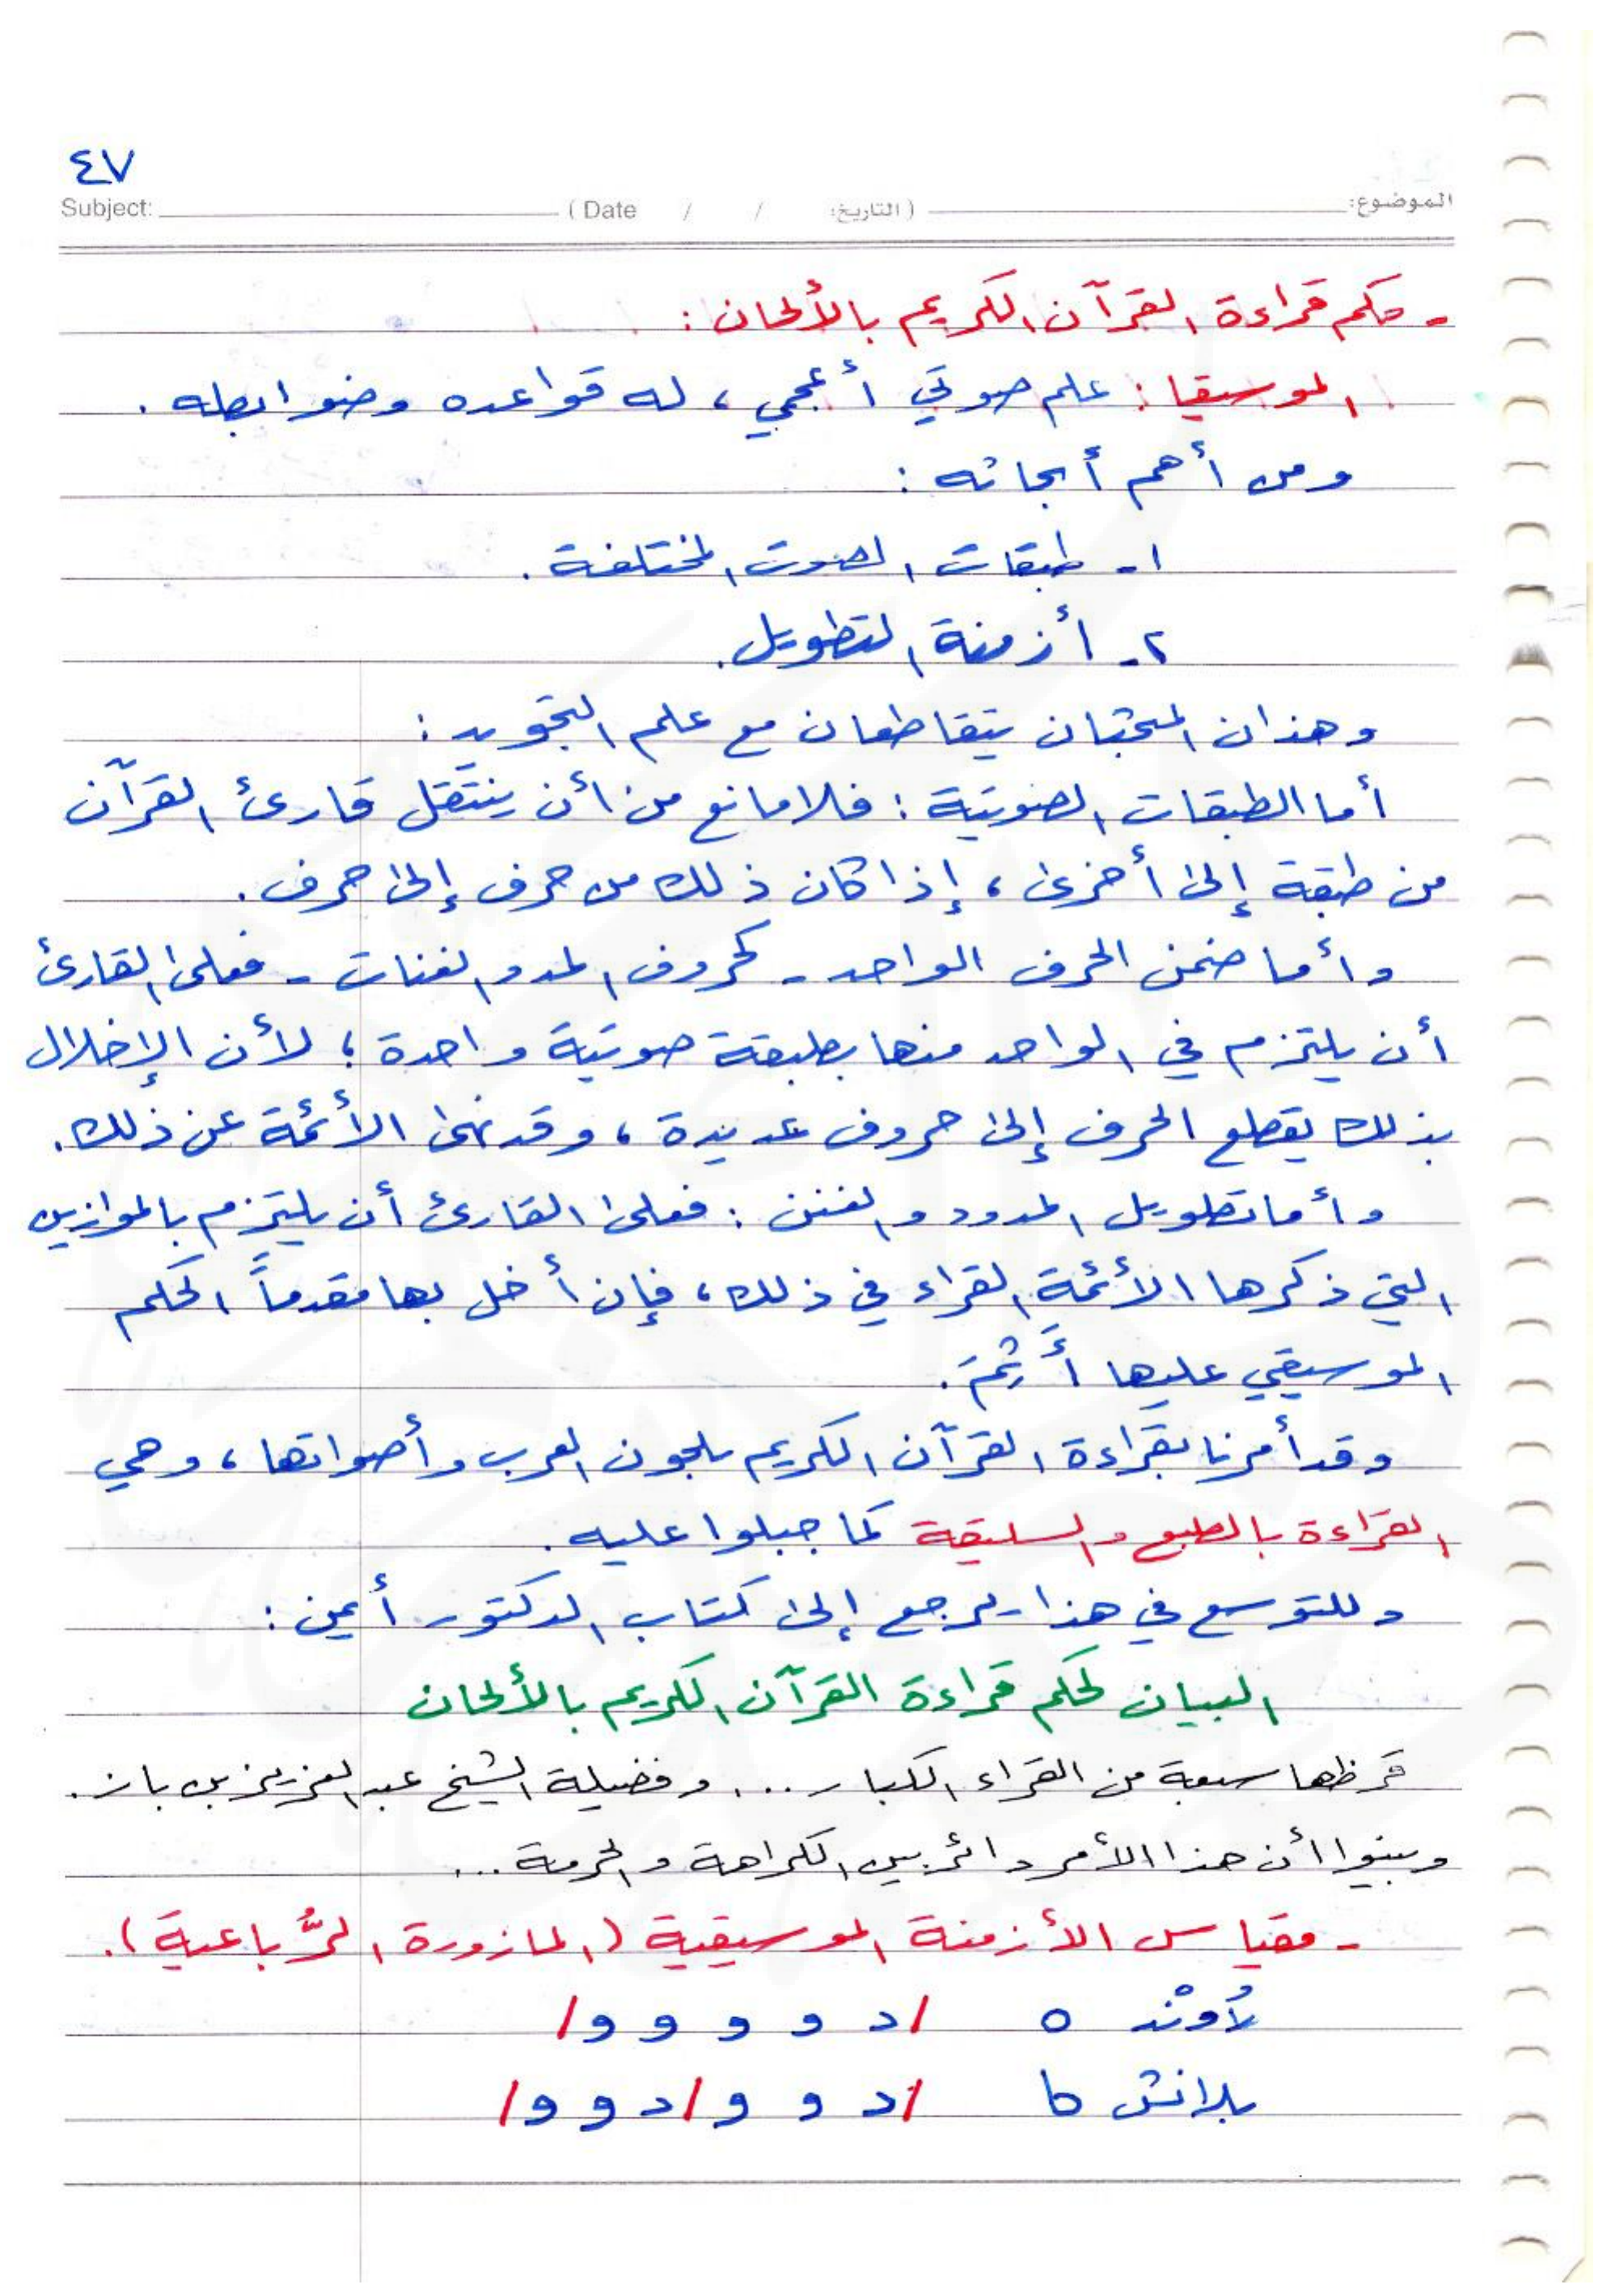 ٤٧
Subject: (Date / / التاريخ:) الموضوع:
- حكم قراءة القرآن الكريم بالألحان:
الموسيقا: علم صوتي أعجمي، له قواعده وضوابطه.
ومن أهم أبحاثه:
١- طبقات الصوت المختلفة.
٢- أزمنة التطويل.
وهذان المبحثان يتقاطعان مع علم التجويد:
أما الطبقات الصوتية: فلا مانع من أن ينتقل قارئ القرآن
من طبقة إلى أخرى، إذا كان ذلك من حرف إلى حرف.
وأما ضمن الحرف الواحد - كحروف المد والغنات - فعلى القارئ
أن يلتزم في الواحد منها بطبقة صوتية واحدة؛ لأن الإخلال
بذلك يقطع الحرف إلى حروف عديدة، وقد نهى الأئمة عن ذلك.
وأما تطويل المدود والغنن: فعلى القارئ أن يلتزم بالموازين
التي ذكرها الأئمة القراء في ذلك، فإن أخل بها مقدماً الحكم
الموسيقي عليها أَثِمَ.
وقد أمرنا بقراءة القرآن الكريم بلحون العرب وأصواتها، وهي
القراءة بالطبع والسليقة كما جبلوا عليه.
وللتوسع في هذا يرجع إلى كتاب الدكتور أيمن:
البيان لحكم قراءة القرآن الكريم بالألحان
قرظها سبعة من القراء الكبار ...، وفضيلة الشيخ عبد العزيز بن باز.
وبينوا أن هذا الأمر دائر بين الكراهة والحرمة ...
- مقياس الأزمنة الموسيقية (المازورة الرُّباعية).
لاُونْد ه /د و و و و/
بلانش /د و و/د و و/